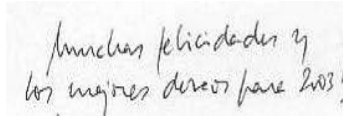 Muchas felicidades y
los mejores deseos para 2003!